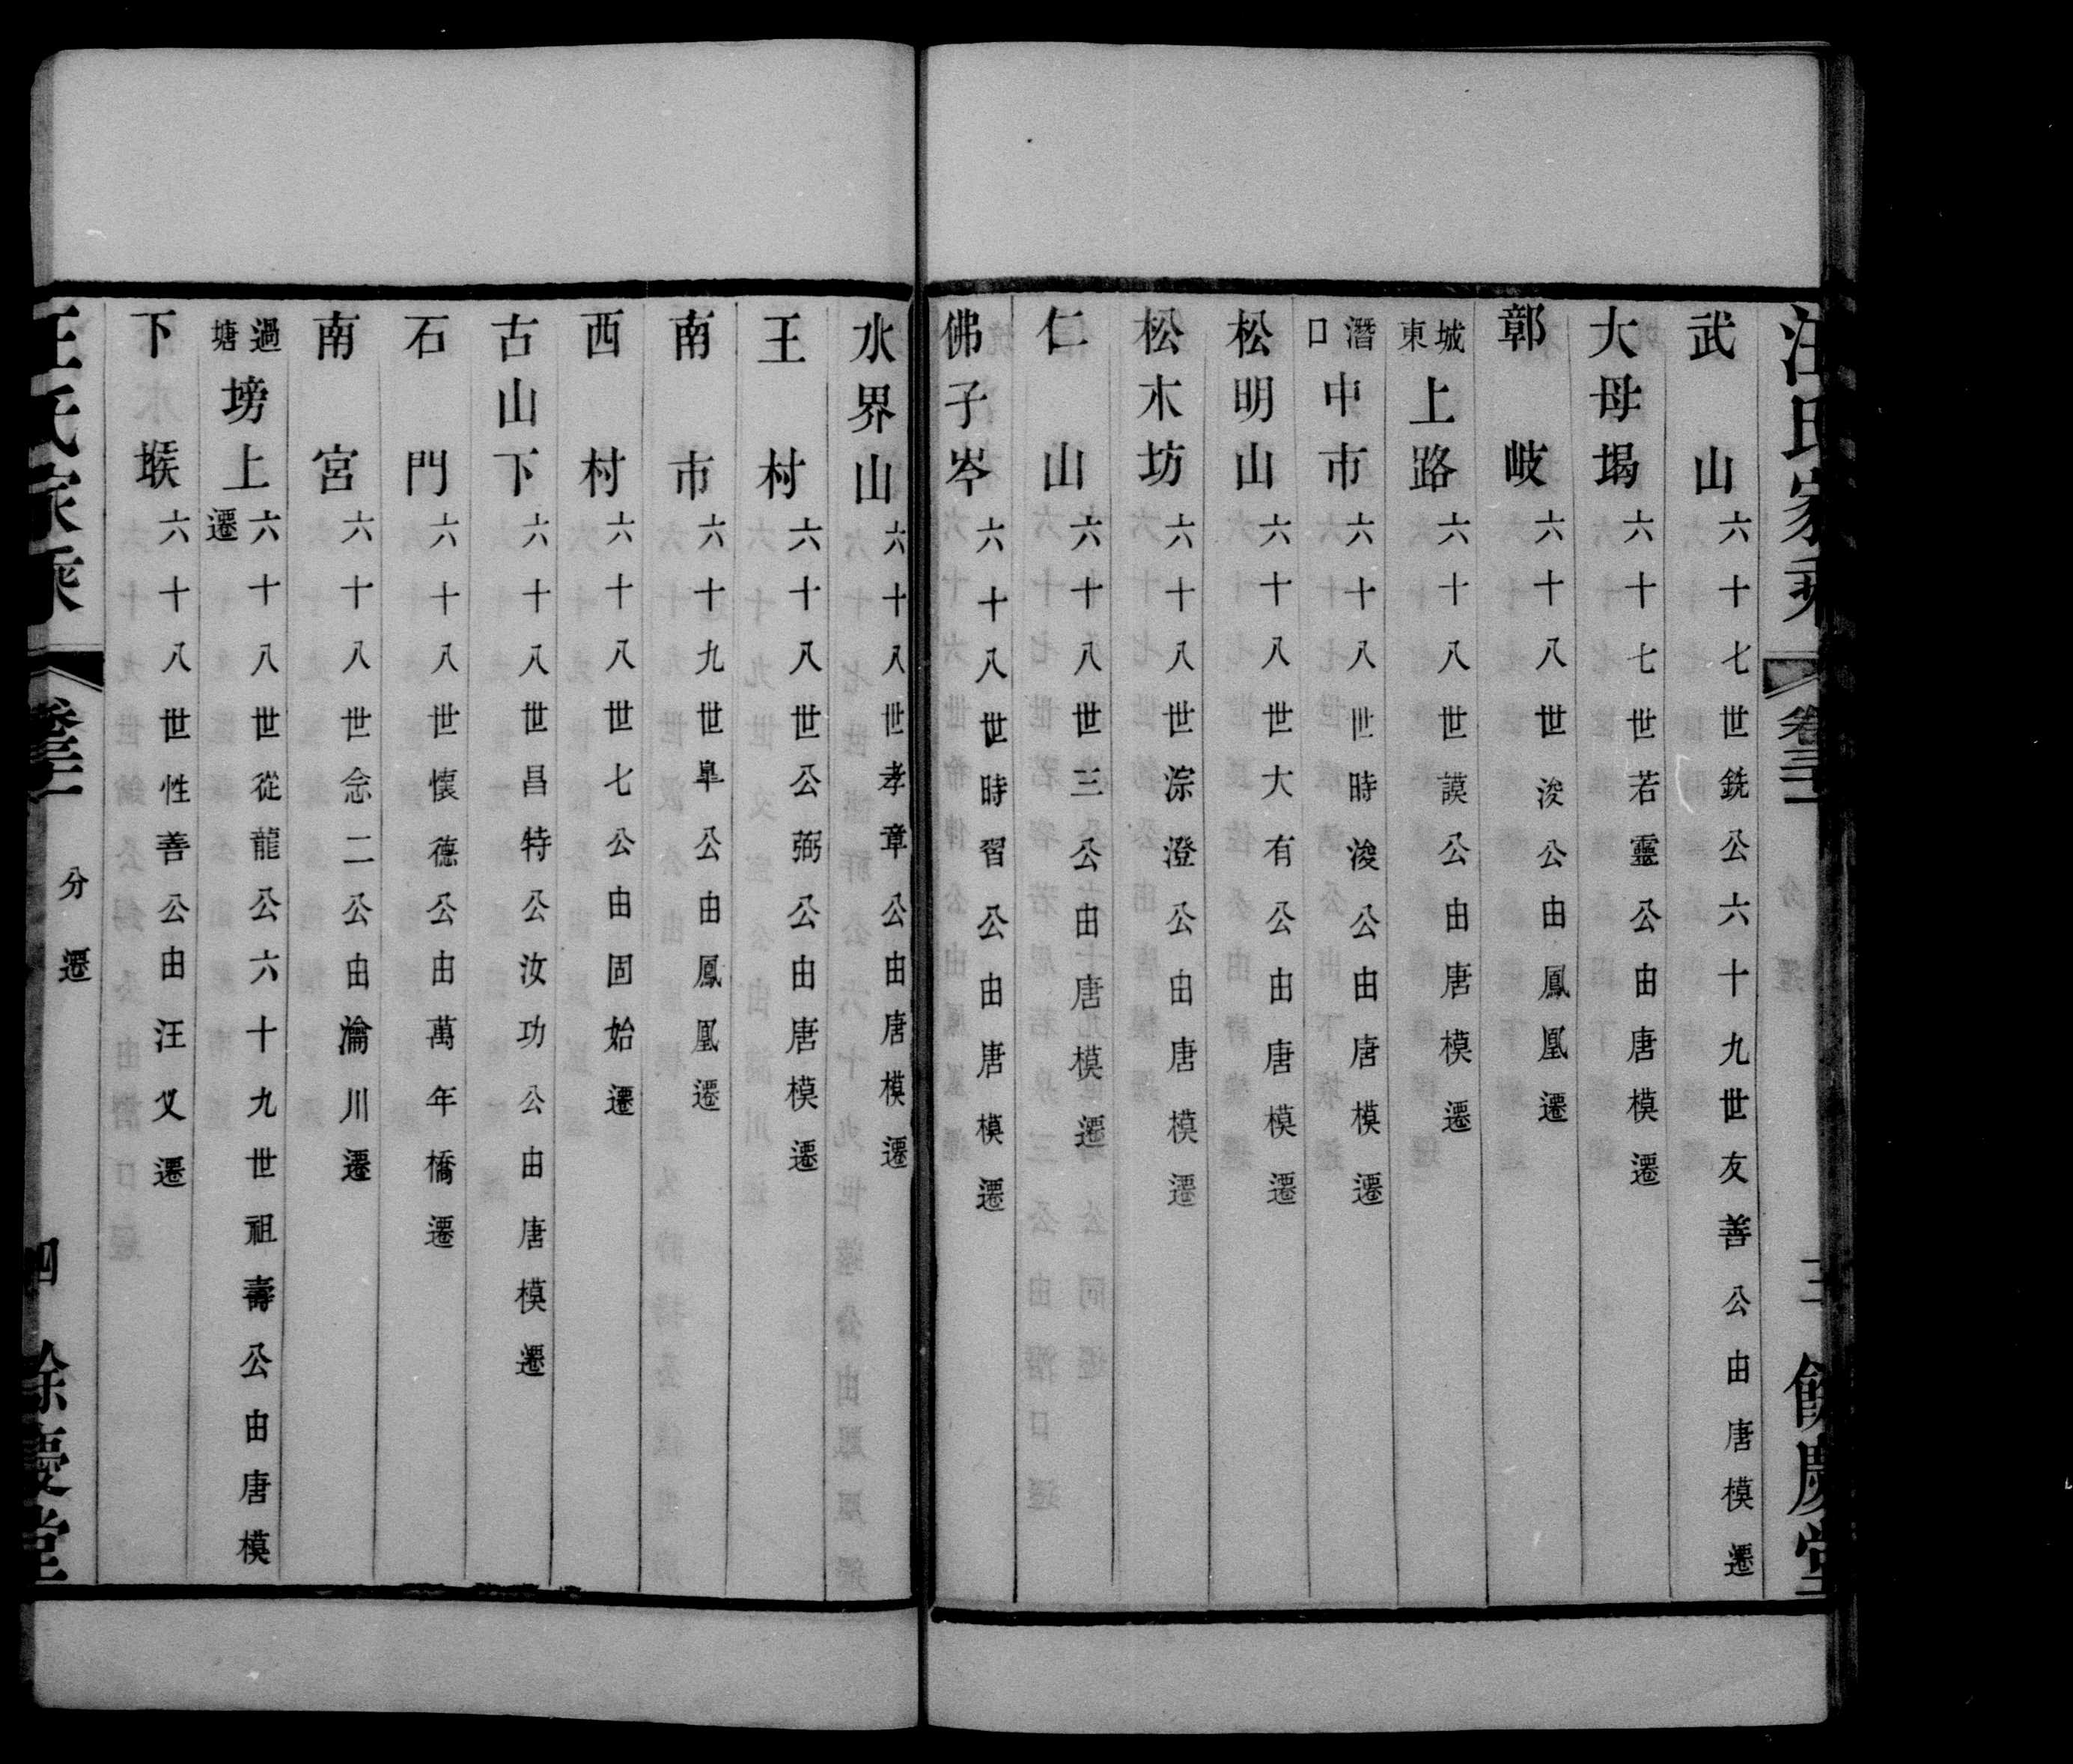 汪氏家乘 卷三十二 三 餘慶堂
武山 六十七世銑公六十九世友善公由唐模遷
大母堨 六十七世若靈公由唐模遷
鄣岐 六十八世浚公由鳳凰遷
城東上路 六十八世謨公由唐模遷
潛口中市 六十八世時浚公由唐模遷
松明山 六十八世大有公由唐模遷
松木坊 六十八世淙澄公由唐模遷
仁山 六十八世三公由唐模遷
佛子岑 六十八世時習公由唐模遷
水界山 六十八世孝章公由唐模遷
王村 六十八世公弼公由唐模遷
南市 六十九世臯公由鳳凰遷
西村 六十八世七公由固始遷
古山下 六十八世昌特公汝功公由唐模遷
石門 六十八世懷德公由萬年橋遷
南宮 六十八世念二公由瀹川遷
過塘塝上 六十八世從龍公六十九世祖壽公由唐模遷
下堠 六十八世性善公由汪义遷
汪氏家乘 分遷 四 餘慶堂